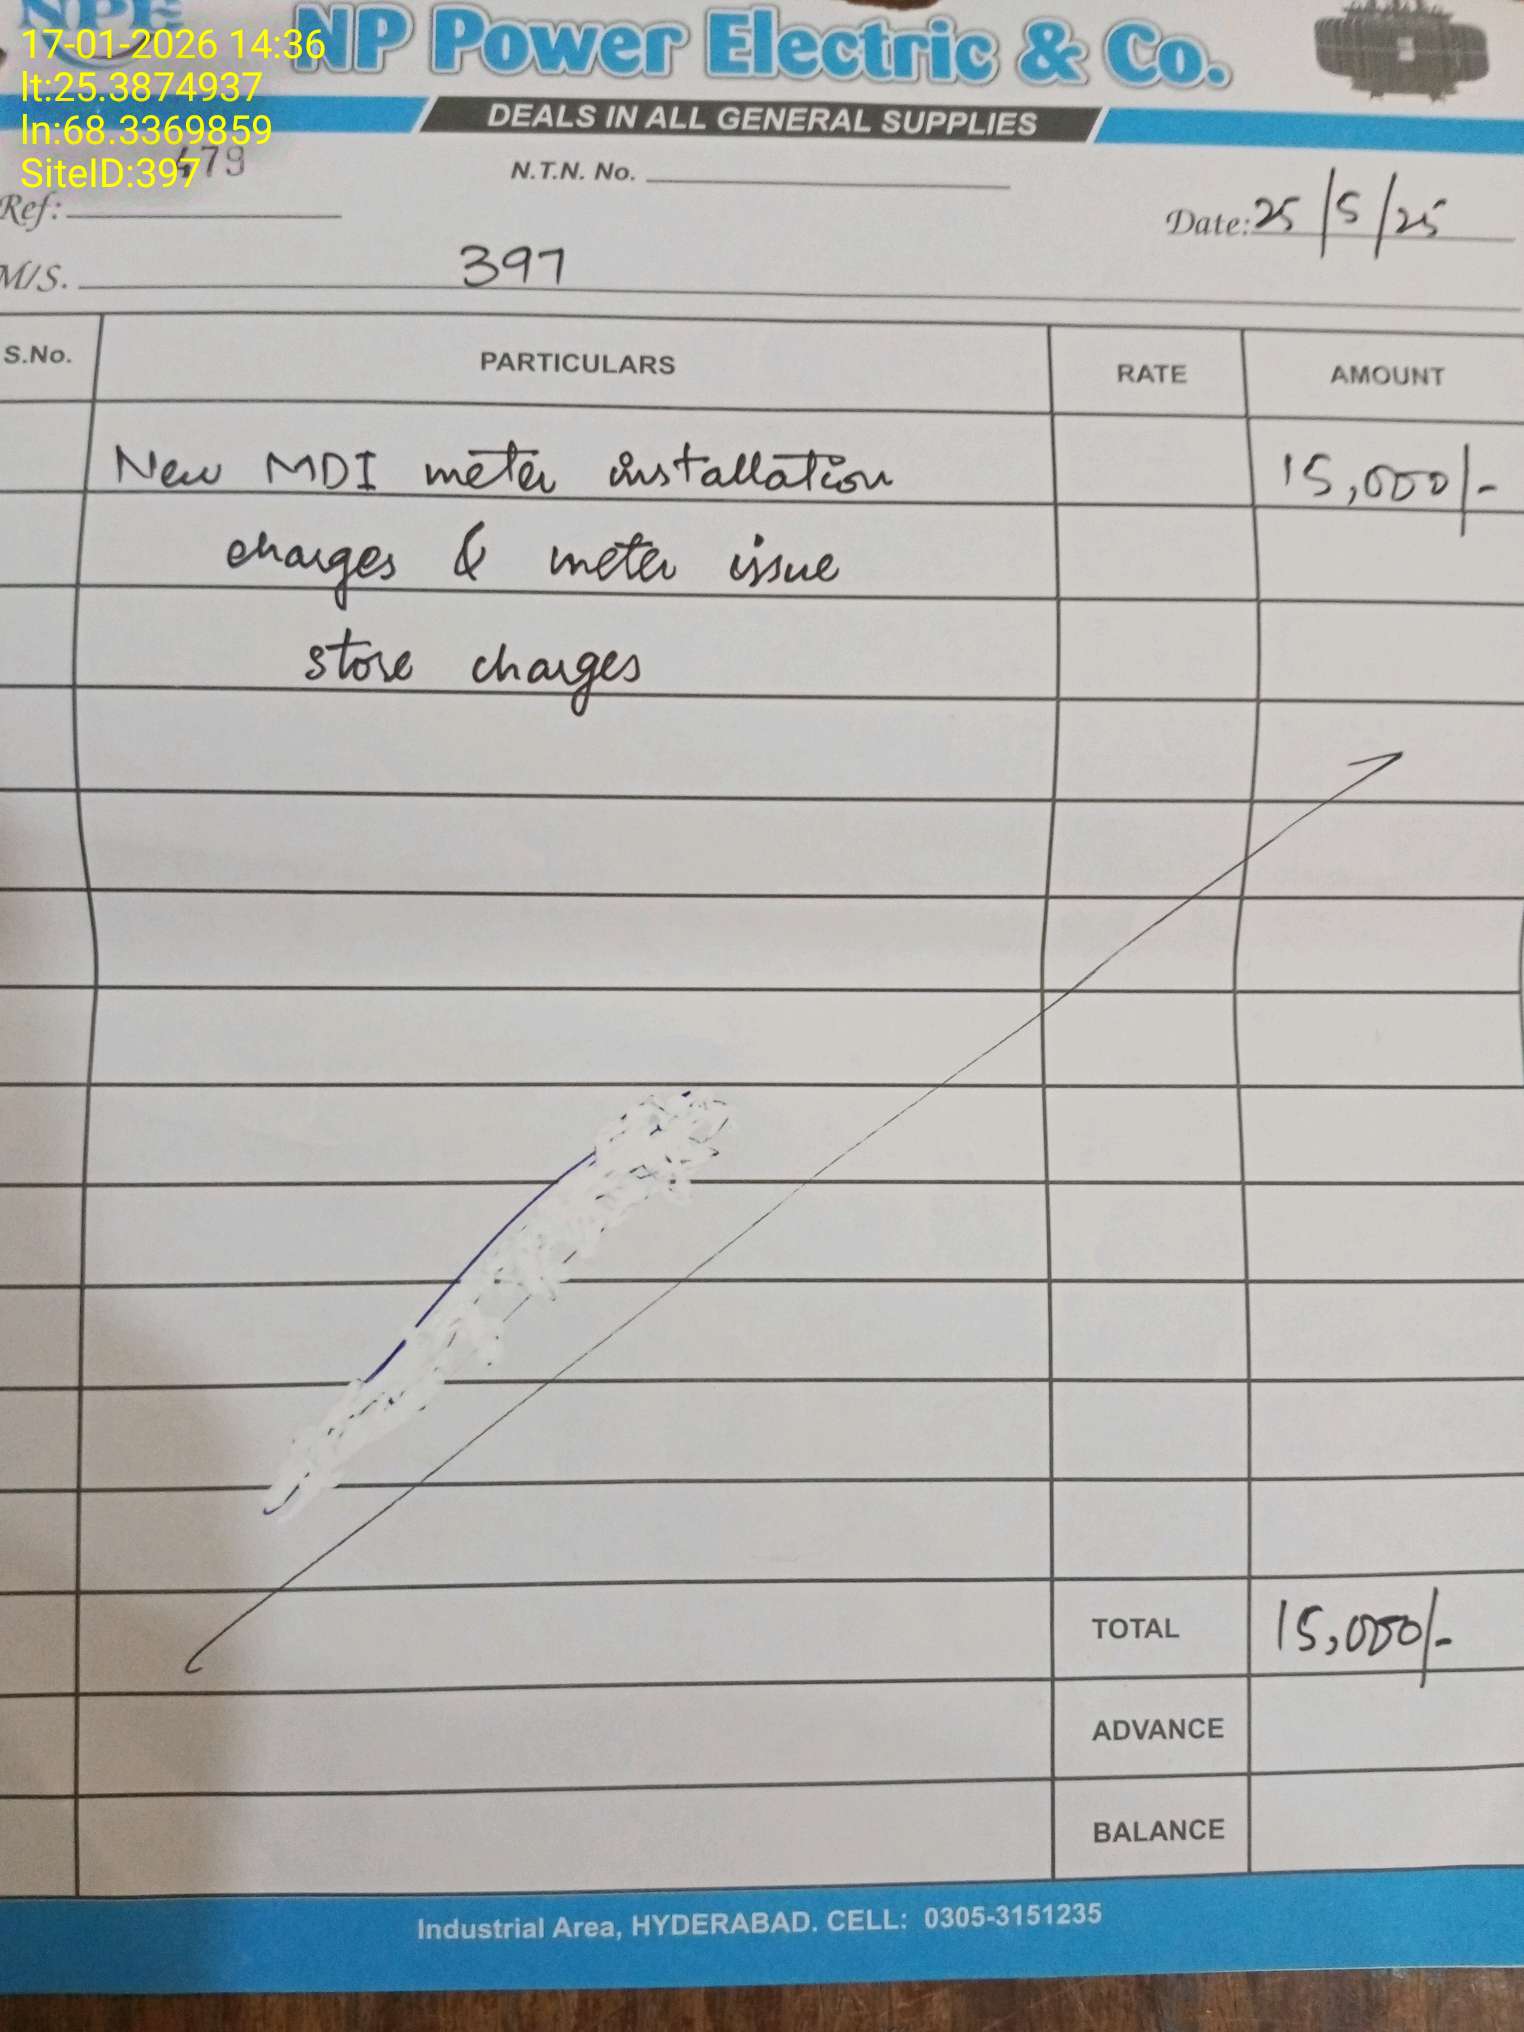 NPE
NP Power Electric & Co.
17-01-2026 14:36
lt:25.3874937
ln:68.3369859
SiteID:397
DEALS IN ALL GENERAL SUPPLIES
479
Ref:
N.T.N. No.
Date: 25/5/25
M/S. 397
S.No. PARTICULARS RATE AMOUNT
New MDI meter installation 15,000/-
charges & meter issue
store charges
TOTAL 15,000/-
ADVANCE
BALANCE
Industrial Area, HYDERABAD. CELL: 0305-3151235